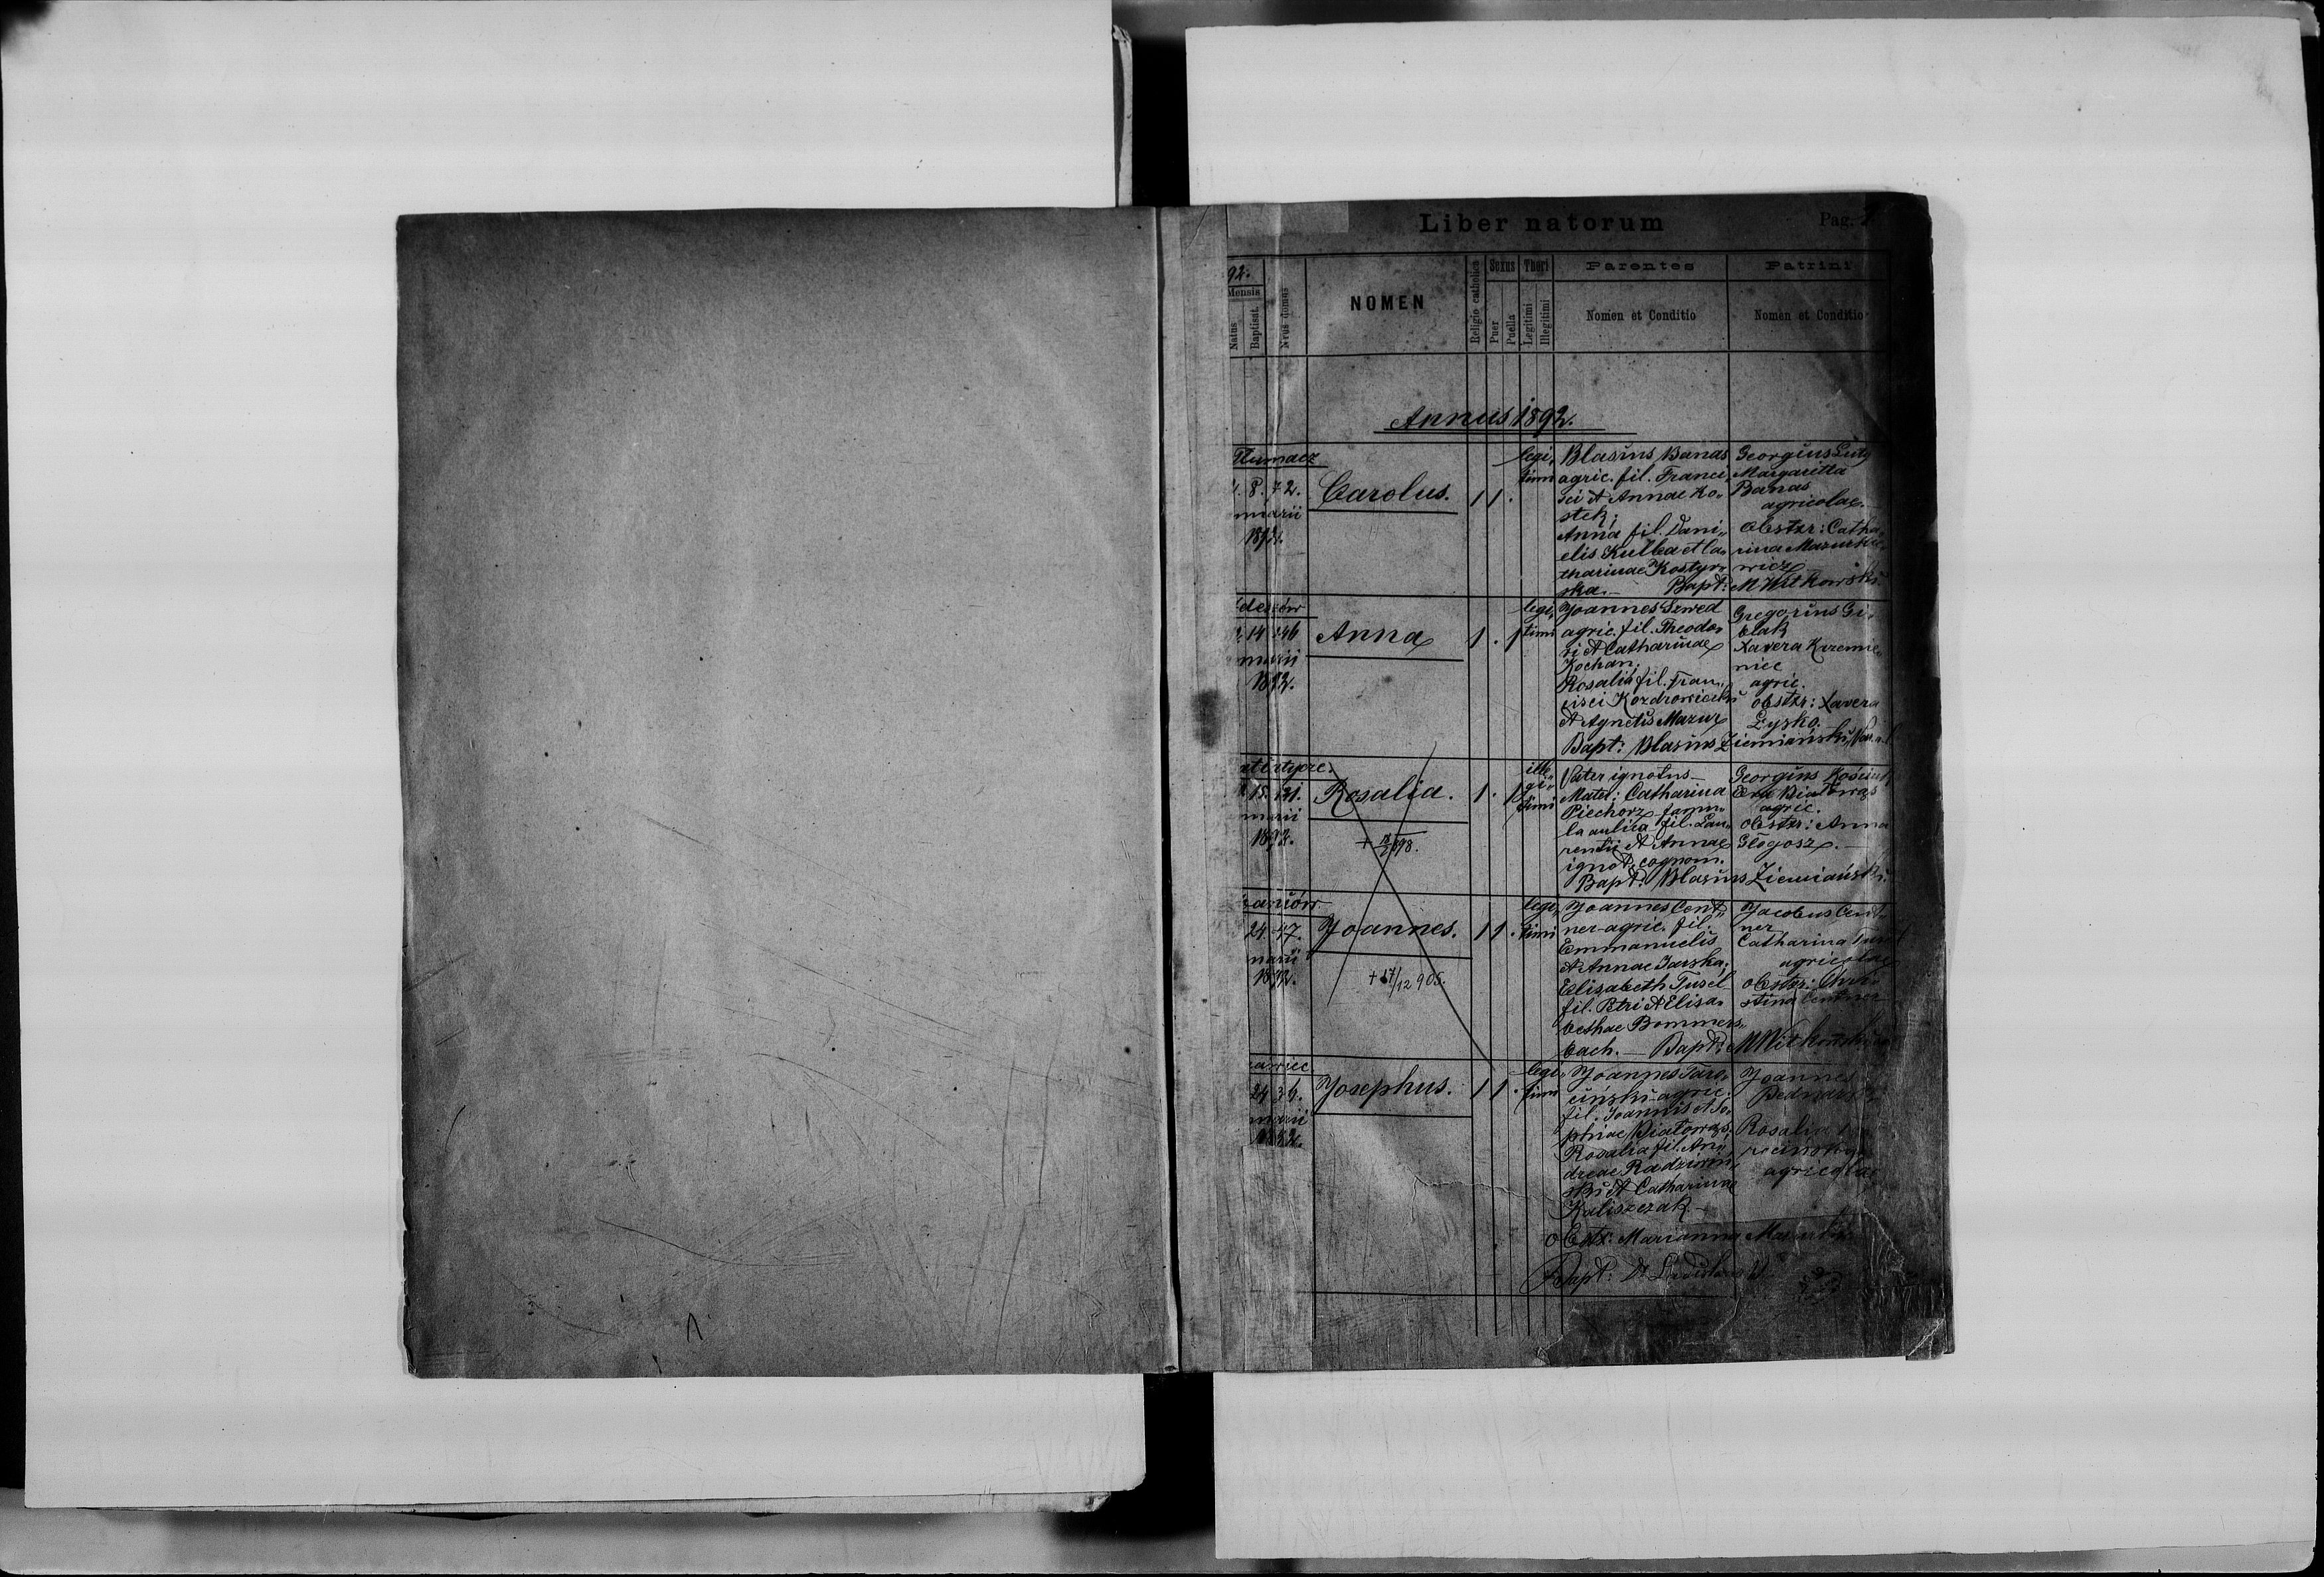 Liber natorum
Pag. 1
92.
Mensis
Natus
Baptisat.
Nrus domus
NOMEN
Religio catholica
Sexus
Puer
Puella
Thori
Legitimi
Illegitimi
Parentes
Nomen et Conditio
Patrini
Nomen et Conditio
Annus 1892.
Tłumacz
8. 72.
nuarii
1892.
Carolus.
1 1 .
legi„
timi
Blasius Banas
agric. fil. Franci„
sci et Annae Ko„
stek;
Anna fil. Dani„
elis Kulba et Ca„
tharinae Kostyr„
ska.— Bapt:
Georgius
Margaritta
Banas
agricolae.
Obstxr: Catha„
rina Mazurkie„
wicz
M Witkowski
14 146
nuarii
1892.
Anna
1 . 1
legi„
timi
Joannes Szwed
agric. fil. Theodo„
ri et Catharinae
Kochan;
Rosalia fil. Fran„
cisci Kozdrowicki
et Agnetis Mazur
Bapt: Blasius Ziemiański
Gregorius Gi„
blak
Xavera Krzemie„
niec
agric.
obstxr: Xavera
Łyzko.
15. 131.
nuarii
1892.
Rosalia.
898.
1 . 1
ille„
gi„
timi
Pater ignotus—
Mater: Catharina
Piechorz famu„
la aulica fil. Lau„
rentii et Annae
ignot. cognom.
Bapt: Blasius Ziemiański.
Georgius
Eva Białowąs
agric.
obstxr: Anna
Głogosz.—
24. 47.
nuarii
1892.
Joannes.
+ 17/12 905.
1 1 .
legi„
timi
Joannes Cent„
ner agric. fil.
Emmanuelis
et Annae Jarska;
Elisabeth Tusel
fil. Petri et Elisa„
bethae Bommers„
bach.— Bapt:
Jacobus Cent„
ner
Catharina
agricolae
obstxr: Chri„
stina Centner
M Witkowski
24 36.
nuarii
1892.
Josephus.
1 1 .
legi„
timi
Joannes Tara„
ciński agric.
fil. Joannis et So„
phiae Białowąs;
Rosalia fil. An„
dreae Radziwin„
ski et Catharinae
Kaliszczak.—
Joannes
Rosalia
agricolae
Obstx: Marianna
Bapt:
1